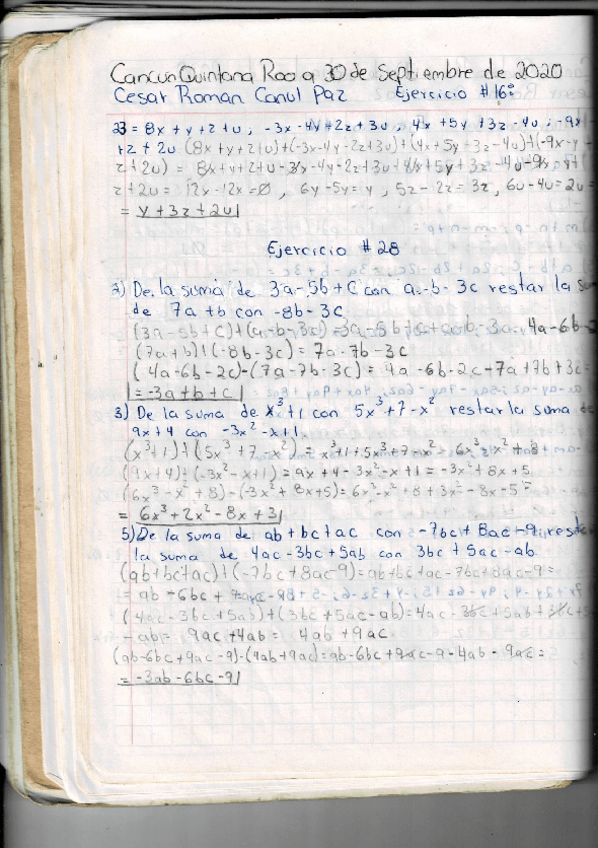 Cancun Quintana Roo a 30 de Septiembre de 2020
Cesar Roman Canul Paz Ejercicio #16:
23 = 8x + y + z + u, -3x - 4y - 2z + 3u, 4x + 5y + 3z - 4u, -9x - y
+z + 2u (8x + y + z + u) + (-3x - 4y - 2z + 3u) + (4x + 5y + 3z - 4u) + (-9x - y
z + 2u) = 8x + y + z + u - 3x - 4y - 2z + 3u + 4x + 5y + 3z - 4u - 9x - y +
z + 2u = 12x - 12x = 0, 6y - 5y = y, 5z - 2z = 3z, 6u - 4u = 2u =
= y + 3z + 2u
Ejercicio #28
2) De la suma de 3a - 5b + C con a - b - 3c restar la
de 7a + b con -8b - 3c
(3a - 5b + c) + (a - b - 3c) = 3a - 5b + c + a - b - 3c = 4a - 6b - 2
(7a + b) + (-8b - 3c) = 7a - 7b - 3c
(4a - 6b - 2c) - (7a - 7b - 3c) = 4a - 6b - 2c - 7a + 7b + 3c =
= -3a + b + c
3) De la suma de x³ + 1 con 5x³ + 7 - x² restar la suma de
9x + 4 con -3x² - x + 1
(x³ + 1) + (5x³ + 7 - x²) = x³ + 1 + 5x³ + 7 - x² = 6x³ - x² + 8
(9x + 4) + (-3x² - x + 1) = 9x + 4 - 3x² - x + 1 = -3x² + 8x + 5
(6x³ - x² + 8) - (-3x² + 8x + 5) = 6x³ - x² + 8 + 3x² - 8x - 5 =
= 6x³ + 2x² - 8x + 3
5) De la suma de ab + bc + ac con -7bc + 8ac - 9, restar
la suma de 4ac - 3bc + 5ab con 3bc + 5ac - ab
(ab + bc + ac) + (-7bc + 8ac - 9) = ab + bc + ac - 7bc + 8ac - 9 =
= ab - 6bc +
(4ac - 3bc + 5ab) + (3bc + 5ac - ab) = 4ac - 3bc + 5ab + 3bc + 5
- ab = 9ac + 4ab = 4ab + 9ac
(ab - 6bc + 9ac - 9) - (4ab + 9ac) = ab - 6bc + 9ac - 9 - 4ab - 9ac =
= -3ab - 6bc - 9